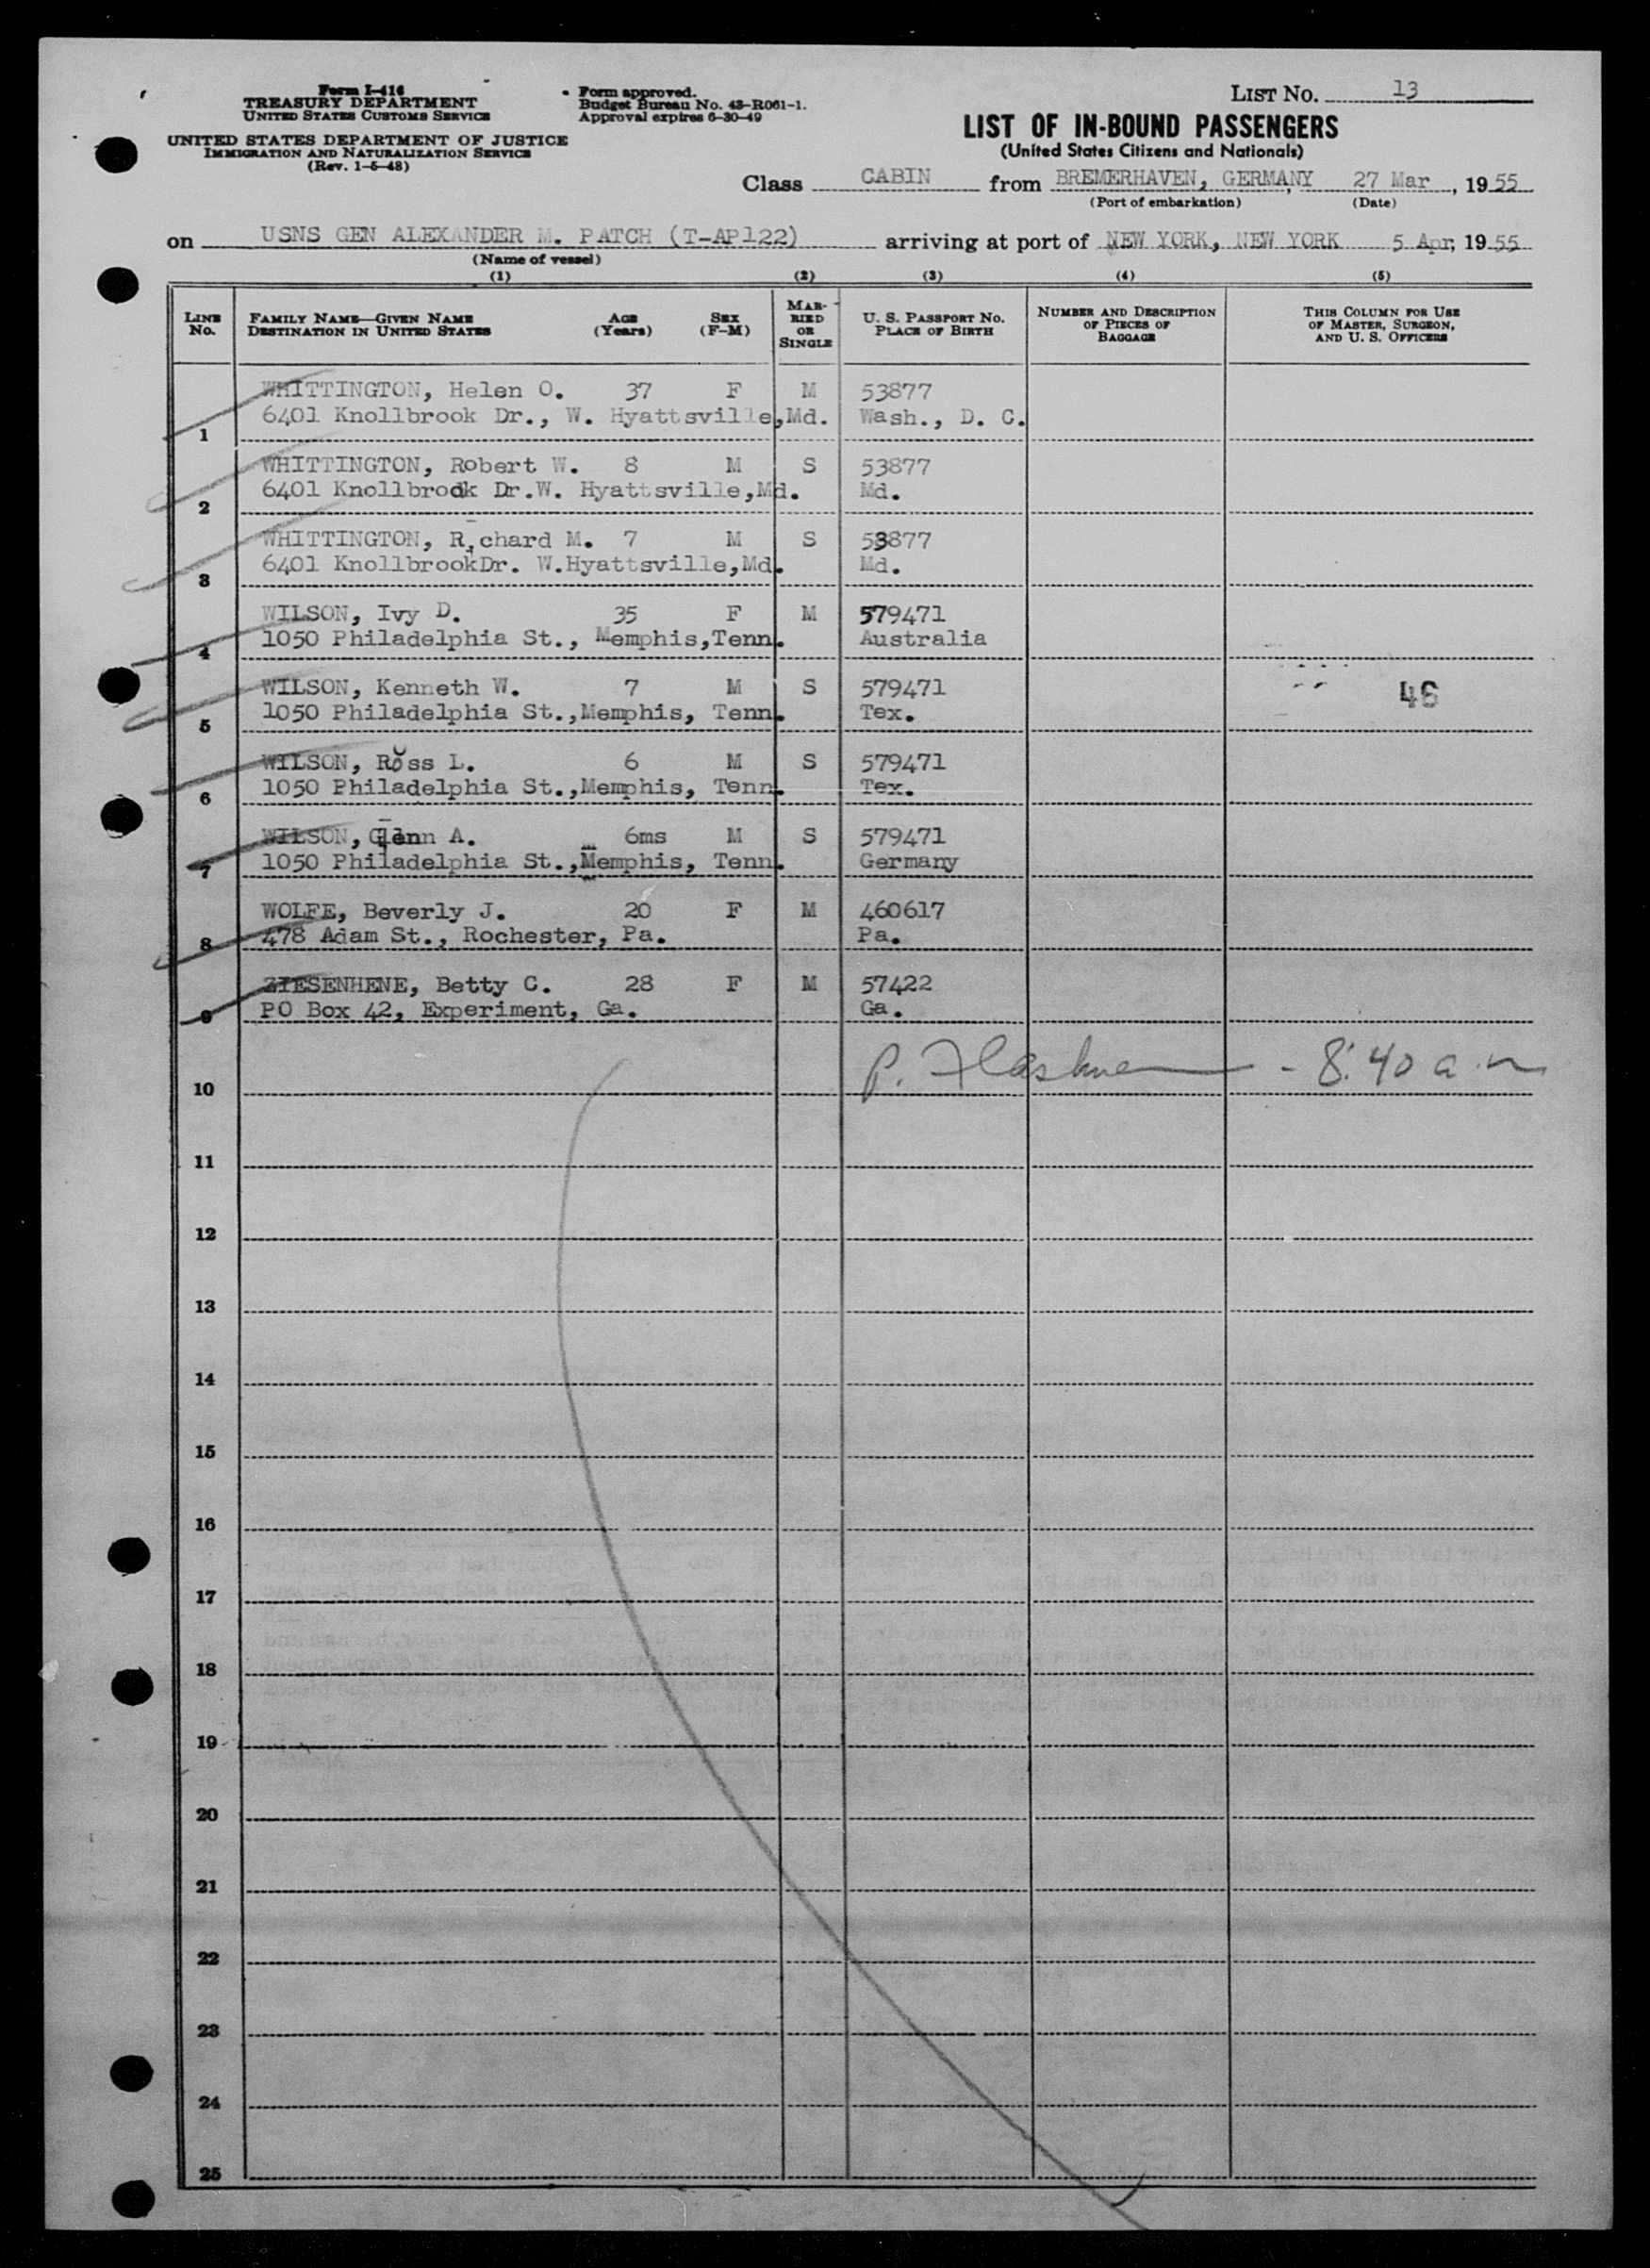 Form I-416
TREASURY DEPARTMENT
UNITED STATES CUSTOMS SERVICE
UNITED STATES DEPARTMENT OF JUSTICE
IMMIGRATION AND NATURALIZATION SERVICE
(Rev. 1-5-48)
Form approved.
Budget Bureau No. 43-R061-1.
Approval expires 6-30-49
LIST NO. 13
LIST OF IN-BOUND PASSENGERS
(United States Citizens and Nationals)
Class CABIN from BREMERHAVEN, GERMANY, 27 Mar, 1955
(Port of embarkation) (Date)
on USNS GEN ALEXANDER M. PATCH (T-AP122) arriving at port of NEW YORK, NEW YORK 5 Apr, 1955
(Name of vessel)
(1) (2) (3) (4) (5)
LINE NO. FAMILY NAME—GIVEN NAME DESTINATION IN UNITED STATES AGE (Years) SEX (F-M) MARRIED OR SINGLE U. S. PASSPORT NO. PLACE OF BIRTH NUMBER AND DESCRIPTION OF PIECES OF BAGGAGE THIS COLUMN FOR USE OF MASTER, SURGEON, AND U. S. OFFICERS
WHITTINGTON, Helen O. 37 F M 53877
6401 Knollbrook Dr., W. Hyattsville,Md. Wash., D. C.
1
WHITTINGTON, Robert W. 8 M S 53877
6401 Knollbrook Dr.W. Hyattsville,Md. Md.
2
WHITTINGTON, R,chard M. 7 M S 53877
6401 KnollbrookDr. W.Hyattsville,Md. Md.
3
WILSON, Ivy D. 35 F M 579471
1050 Philadelphia St., Memphis,Tenn. Australia
4
WILSON, Kenneth W. 7 M S 579471
1050 Philadelphia St.,Memphis, Tenn. Tex.
5
46
WILSON, Ross L. 6 M S 579471
1050 Philadelphia St.,Memphis, Tenn. Tex.
6
WILSON, Glenn A. 6ms M S 579471
1050 Philadelphia St.,Memphis, Tenn. Germany
7
WOLFE, Beverly J. 20 F M 460617
478 Adam St., Rochester, Pa. Pa.
8
ZIESENHENE, Betty C. 28 F M 57422
PO Box 42, Experiment, Ga. Ga.
9
P. - 8:40 a.m
10
11
12
13
14
15
16
17
18
19
20
21
22
23
24
25